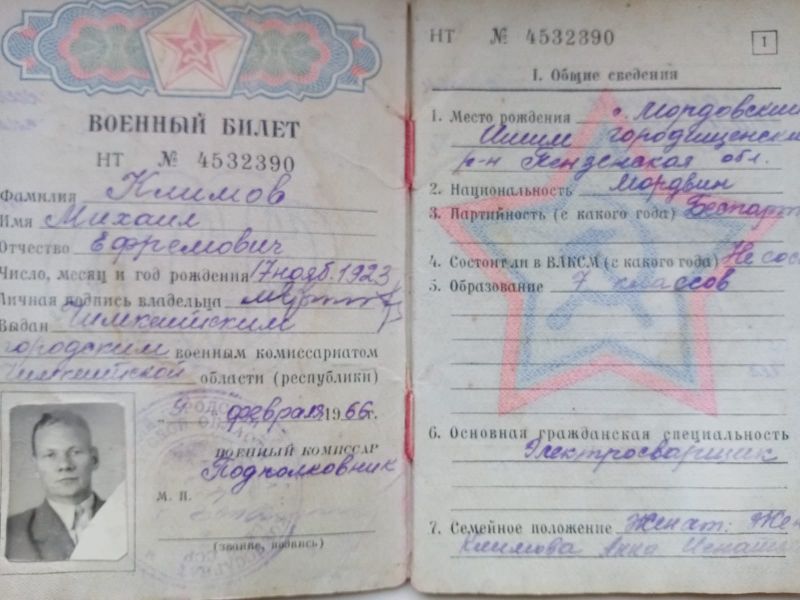 ВОЕННЫЙ БИЛЕТ
НТ № 4532390
Фамилия Климов
Имя Михаил
Отчество Ефремович
Число, месяц и год рождения 17 нояб. 1923
Личная подпись владельца
Выдан Чимкентским
городским военным комиссариатом
Чимкентской области (республики)
"9" февраля 1966 г.
ВОЕННЫЙ КОМИССАР
Подполковник
М. П.
(звание, подпись)
НТ № 4532390
1
I. Общие сведения
1. Место рождения с. Мордовский
Ишим Городищенский
р-н Пензенская обл.
2. Национальность Мордвин
3. Партийность (с какого года) Беспарт
4. Состоял ли в ВЛКСМ (с какого года) Не сос
5. Образование 7 классов
6. Основная гражданская специальность
Электросварщик
7. Семейное положение Женат: Жен
Климова Анна